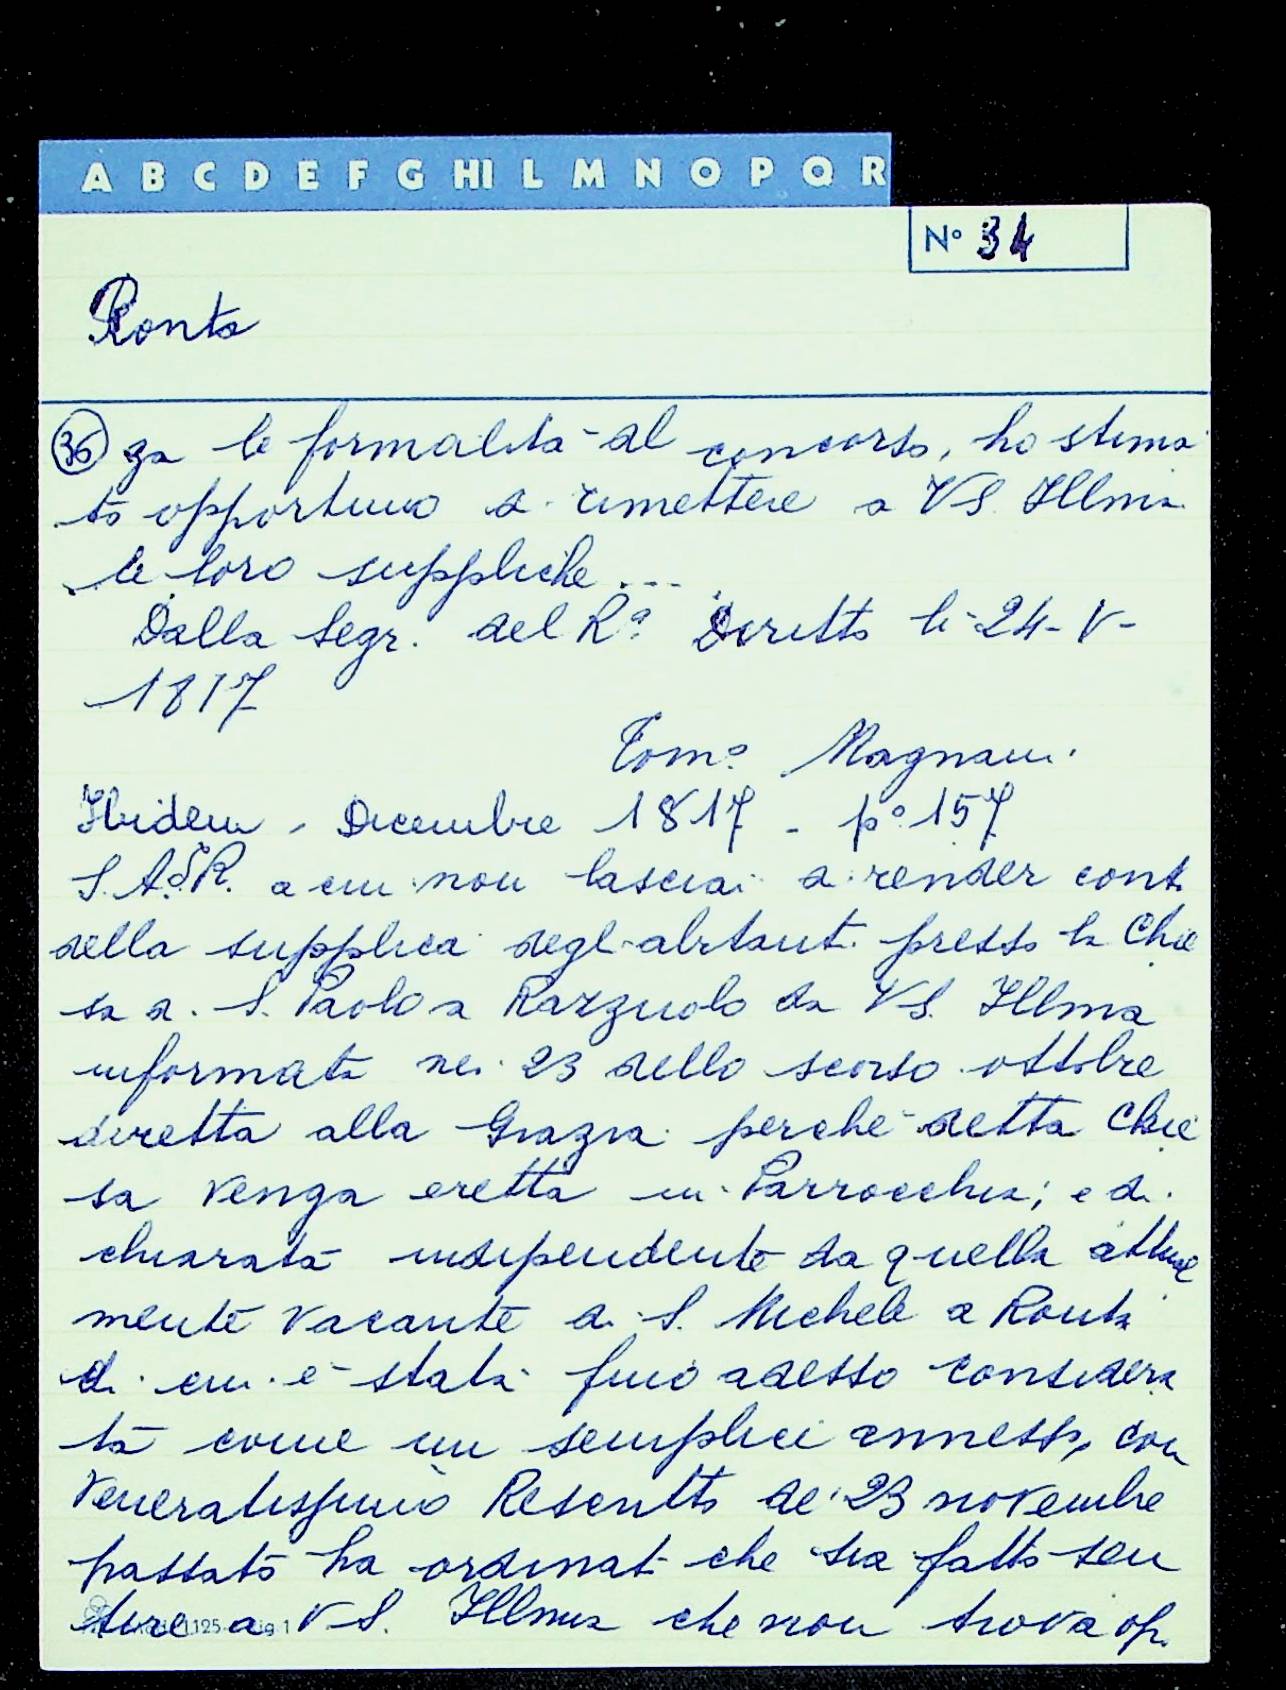 A B C D E F G HI L M N O P Q R
N° 34
Ronta
36 za le formalità al concorso, ho stima
to opportuno di rimettere a VS. Illma
le loro suppliche ...
Dalla Segr. del R° Diritto li 24-V-
1817
Tom° Magnani
Ibidem - Dicembre 1817 - p° 157
S.A.I.R. a cui non lasciai di render conto
della supplica degli abitanti presso la Chie
sa di S. Paolo a Razzuolo da VS. Illma
informata nei 23 dello scorso ottobre
diretta alla Grazia perchè detta Chie
sa venga eretta in Parrocchia; e di
chiarata indipendente da quella attual
mente vacante di S. Michele a Ronta
di cui è stata fino adesso considera
ta come un semplice annesso, con
Veneratissimo Rescritto de' 23 novembre
passato ha ordinato che sia fatto sen
tire a VS. Illma che non trova op